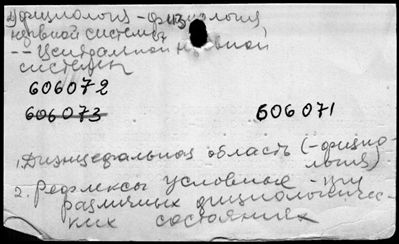 Физиология - физиология
нервной системы
-- Центральной нервной
системы
606072
606073 606071
1. Диэнцефальная область (-физио-
логия)
2. Рефлексы условные - при
различных физиологичес-
ких состояниях